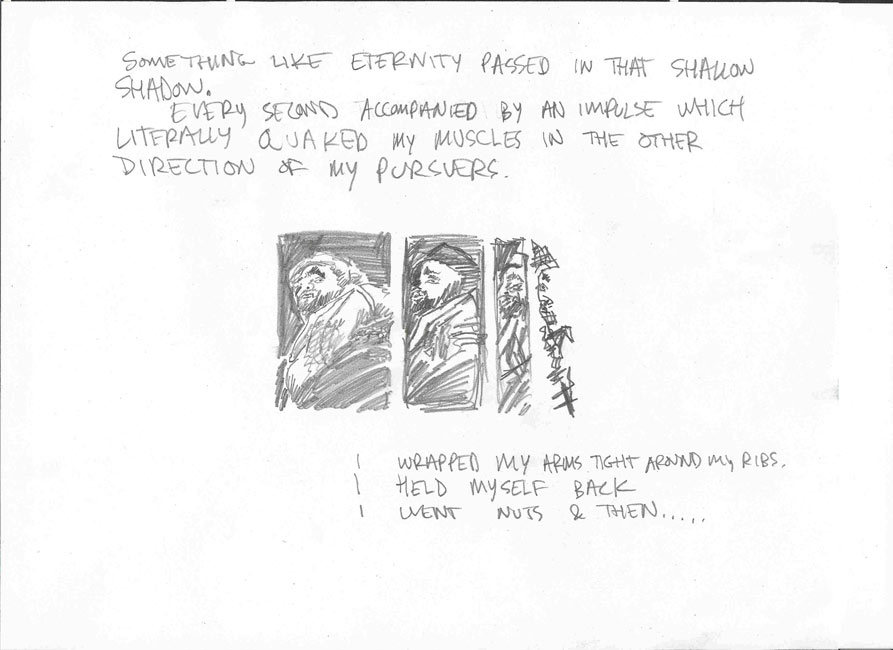 SOMETHING LIKE ETERNITY PASSED IN THAT SHALLOW
SHADOW.
EVERY SECOND ACCOMPANIED BY AN IMPULSE WHICH
LITERALLY QUAKED MY MUSCLES IN THE OTHER
DIRECTION OF MY PURSUERS.
I WRAPPED MY ARMS TIGHT AROUND MY RIBS.
I HELD MYSELF BACK
I WENT NUTS & THEN.....